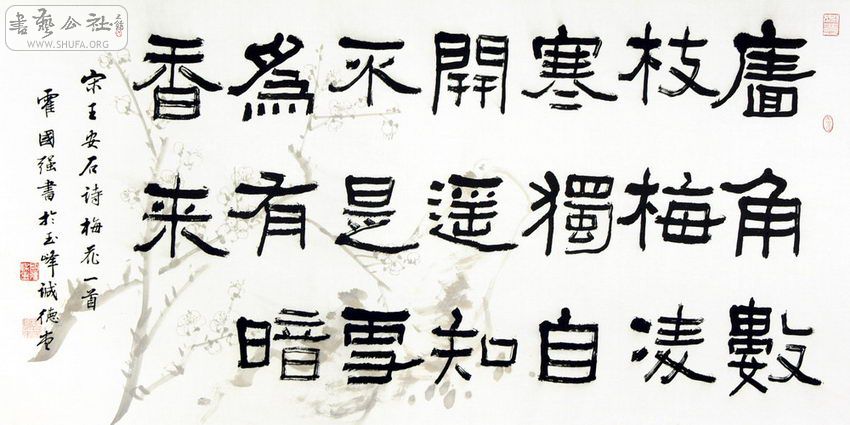 廧角數
枝梅凌
寒獨自
開遥知
不是雪
為有暗
香来
宋王安石诗梅花一首
霍國强書於玉峰诚德堂
書藝公社
WWW.SHUFA.ORG